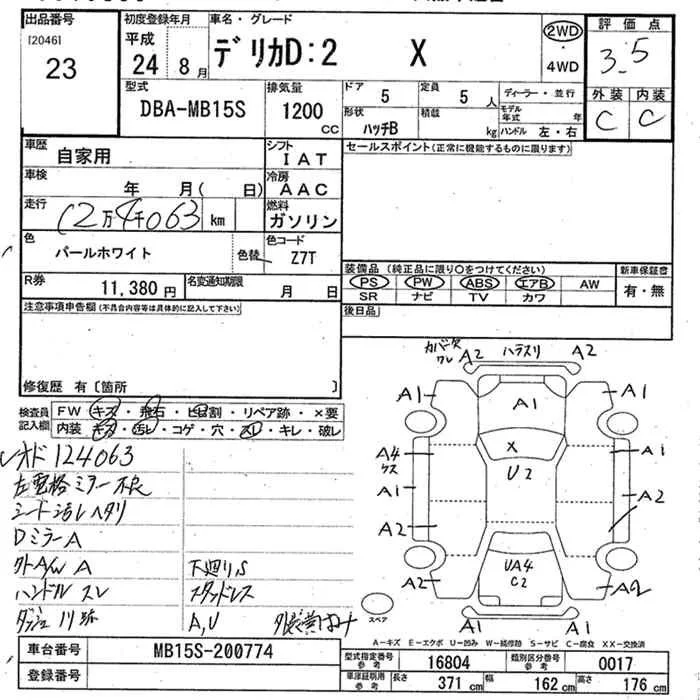 出品番号 初度登録年月 車名・グレード 評価点
[2046] 平成 2WD
23 24 8月 デリカD:2 X 4WD 3.5
型式 排気量 ドア 5 定員 5人 ディーラー・並行 外装 内装
DBA-MB15S 1200 cc 形状 ハッチB 積載 kg モデル年式 年 C C
ハンドル 左・右
車歴 自家用 シフト IAT セールスポイント(正常に機能するものに限ります)
車検 年 月( 日) 冷房 AAC
走行 12万4千063 km 燃料 ガソリン
色 パールホワイト 色替 色コード Z7T
装備品 (純正品に限り○をつけてください) 新車保証書
R券 11,380円 名変通知期限 月 日 PS PW ABS エアB AW 有・無
SR ナビ TV カワ
注意事項申告欄(不具合内容等は具体的に記入して下さい) 後日品
修復歴 有〔箇所 〕
検査員記入欄 FW キズ・飛石・ヒビ割・リペア跡・×要
内装 キズ・汚レ・コゲ・穴・スレ・キレ・破レ
カバー欠 ワレ A2 ハラスリ A2
A1 A1 A1
レオド 124063
左電格ミラー不良 A4 X A1
シート汚レ ヘタリ A1 U2 A2
DミラーA A2
外A/W A 下廻りS UA4
ハンドルスレ スタッドレス A2 C2 A2
A,U
スペア A1 A1
A-キズ E-エクボ U-凹み W-補修跡 S-サビ C-腐食 XX-交換済
車台番号 MB15S-200774 型式指定番号 参考 16804 類別区分番号 参考 0017
登録番号 車庫証明用 参考 長さ 371cm 幅 162cm 高さ 176cm